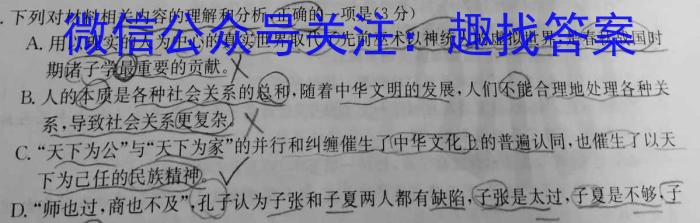 .下列对材料相关内容的理解和分析,正确的一项是(3分)
微信公众号关注:趣找答案
A. 用以现实的人为中心的真实世界取代了先前巫术以神统人的虚拟世界,是春秋战国时
期诸子学最重要的贡献。
B. 人的本质是各种社会关系的总和,随着中华文明的发展,人们不能合理地处理各种关
系,导致社会关系更复杂。
C. “天下为公”与“天下为家”的并行和纠缠催生了中华文化上的普遍认同,也催生了以天
下为己任的民族精神。
D. “师也过,商也不及”,孔子认为子张和子夏两人都有缺陷,子张是太过,子夏是不够,子